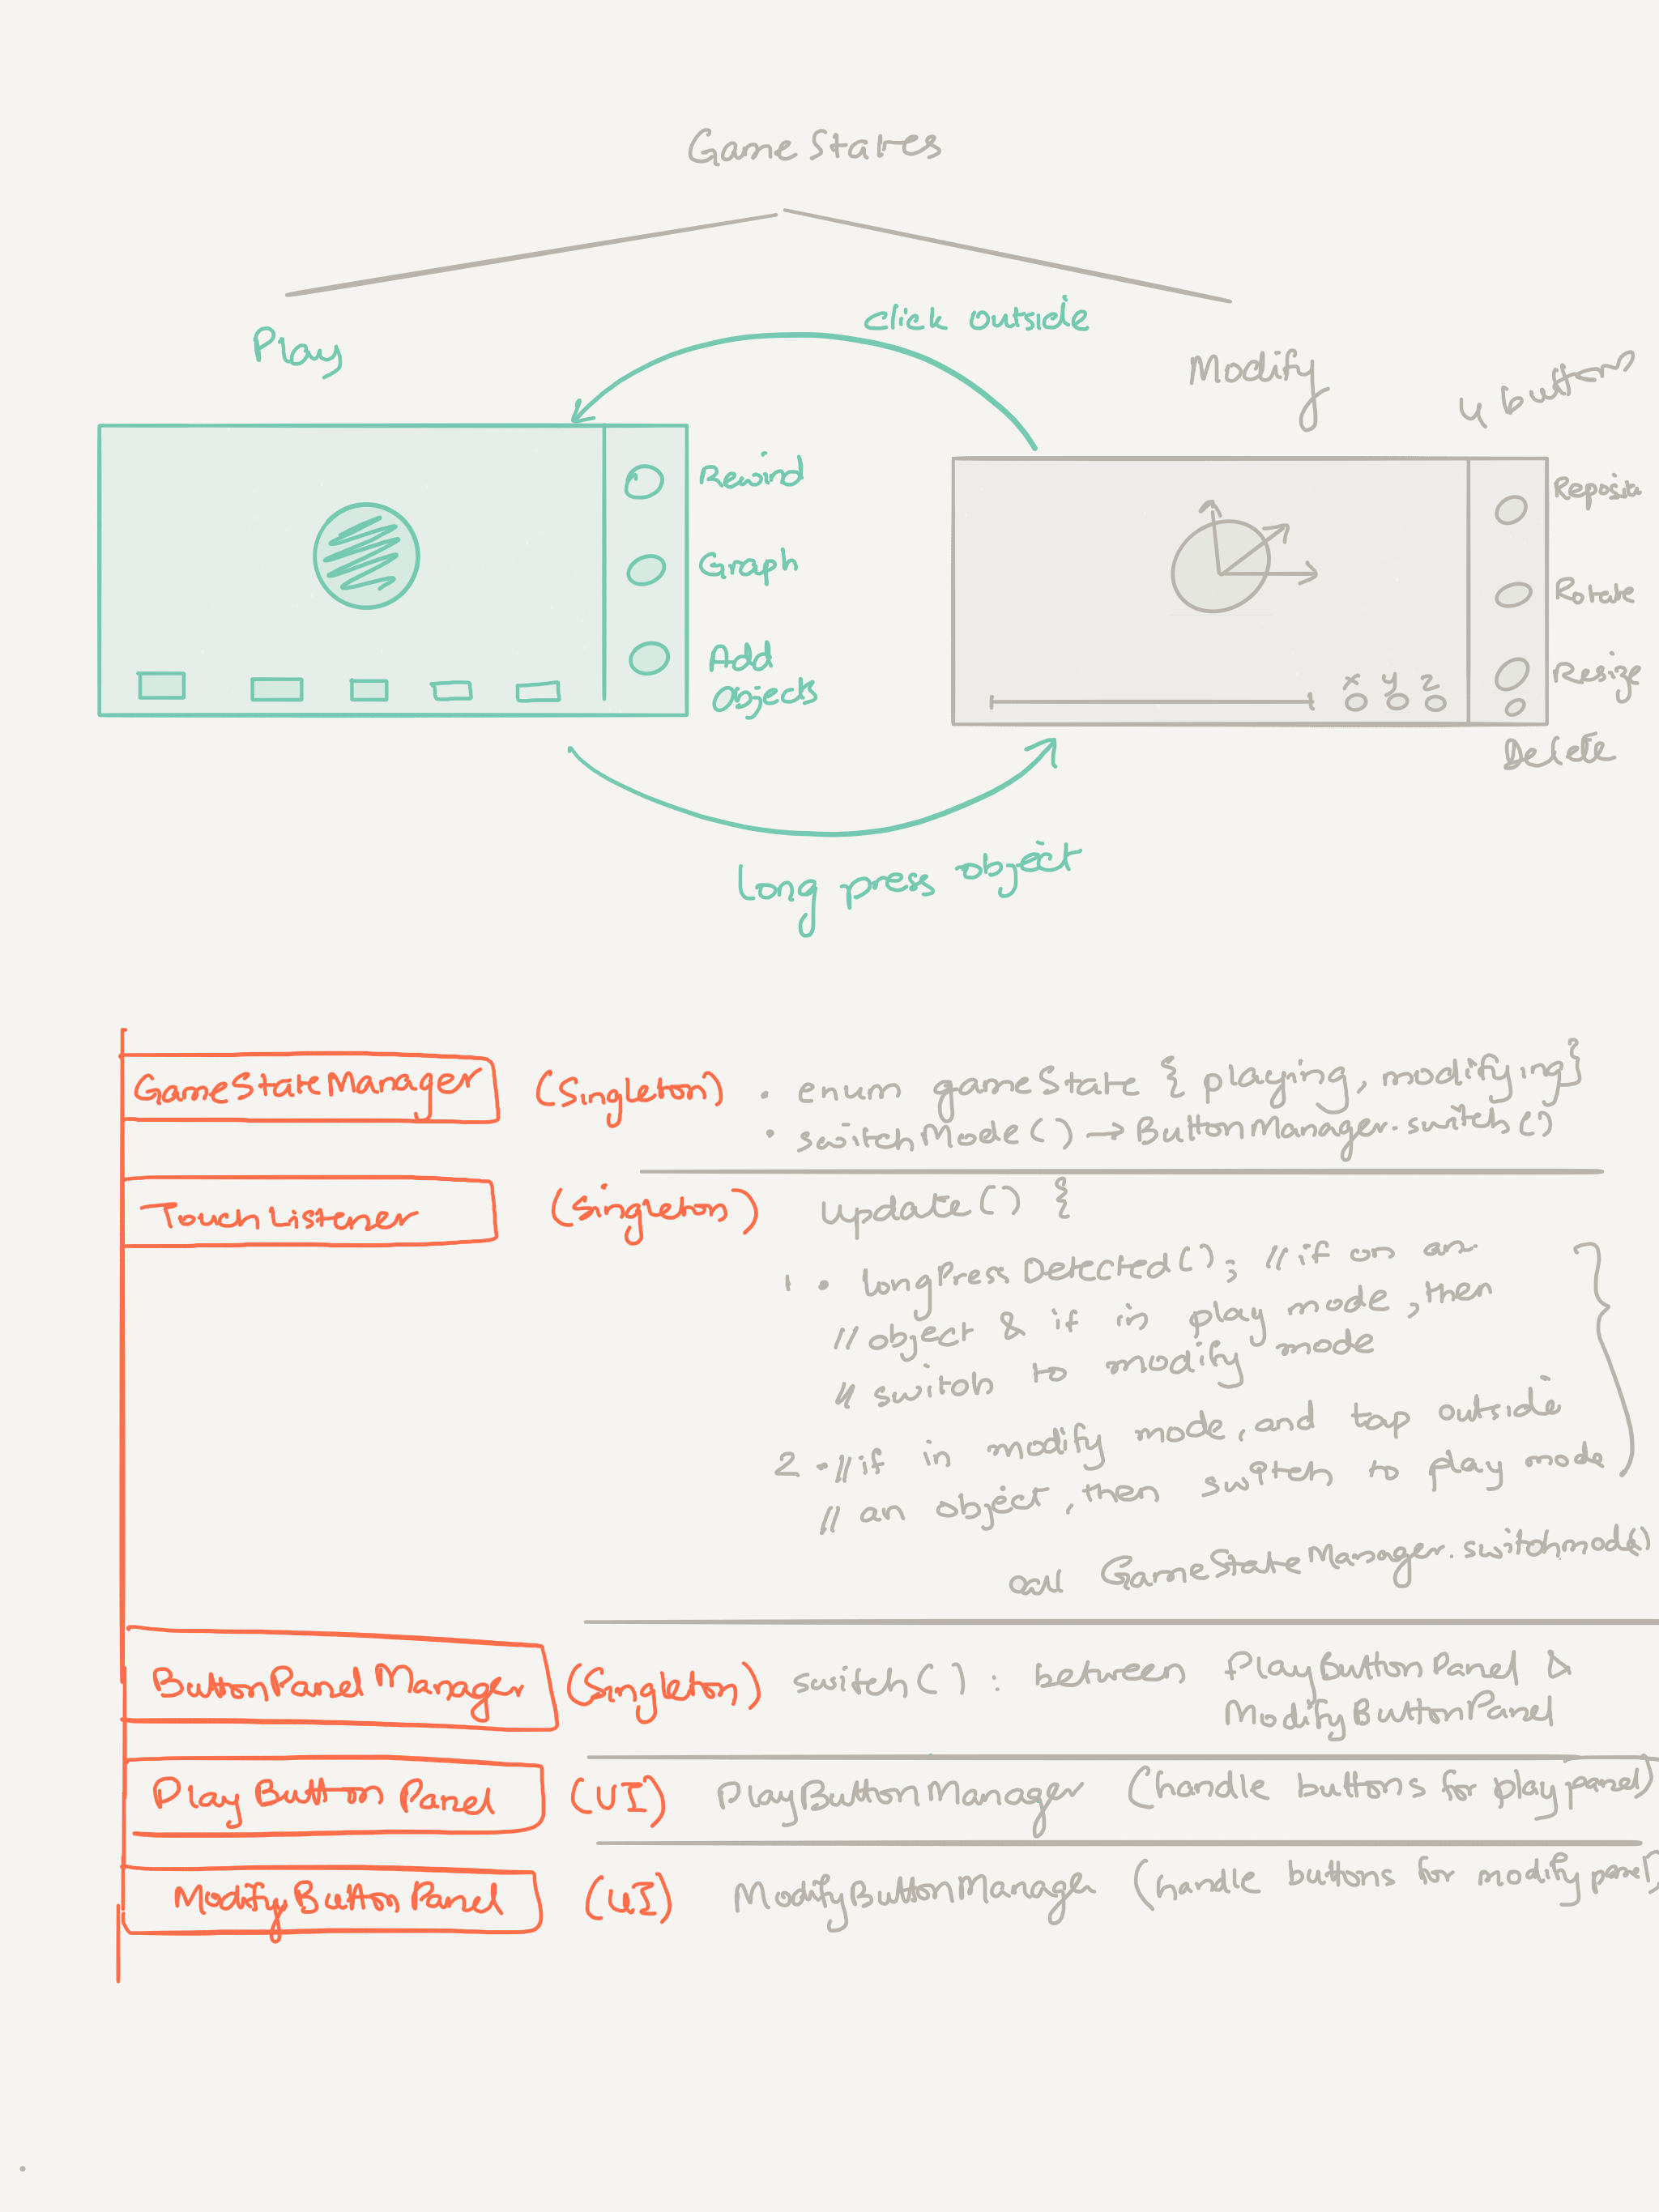 Game States
click outside
Play
Modify
4 buttons
Rewind
Graph
Add
Objects
Reposit
Rotate
Resize
x y z
Delete
Long press object
GameStateManager (Singleton) • enum gameState { playing, modifying}
• switchMode() → ButtonManager.switch()
Touch Listener (Singleton) update() {
1 • longPress Detected(); // if on an
// object & if in play mode, then
// switch to modify mode
2 • // if in modify mode, and tap outside
// an object, then switch to play mode
call GameStateManager.switchmode()
ButtonPanelManager (Singleton) switch() : between PlayButtonPanel &
ModifyButtonPanel
Play Button Panel (UI) PlayButtonManager (handle buttons for play panel)
ModifyButtonPanel (UI) ModifyButtonManager (handle buttons for modify panel)